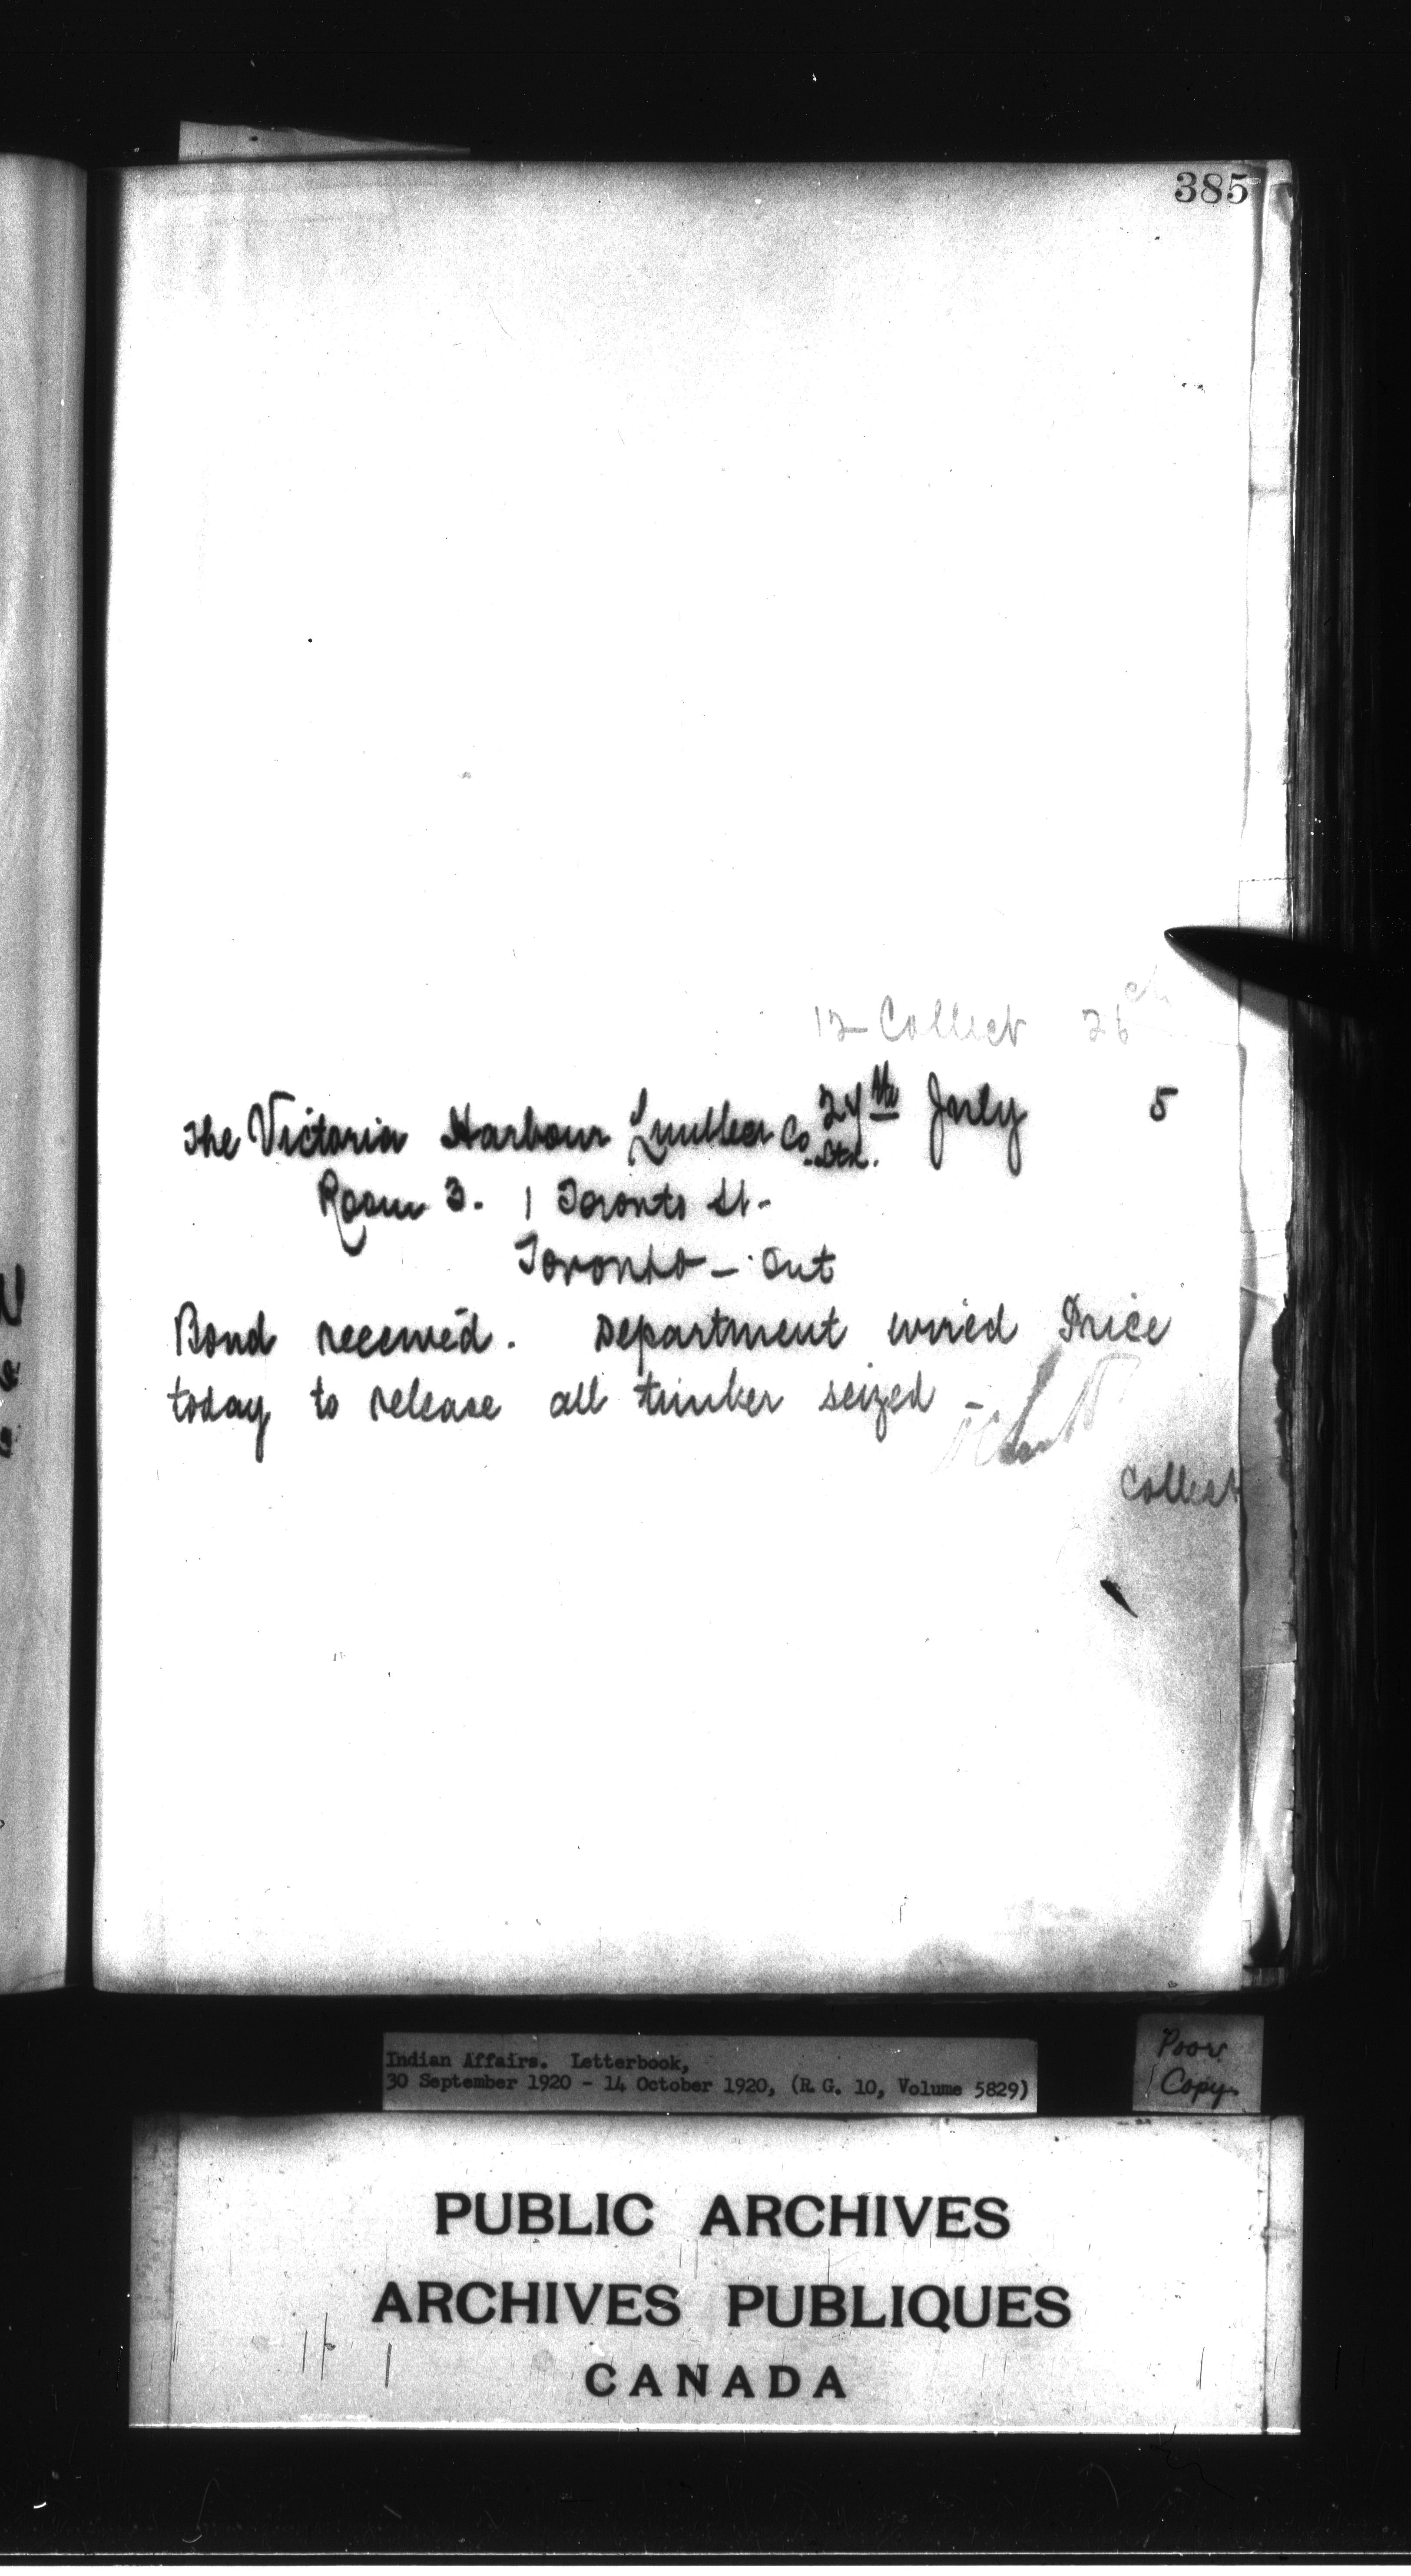 385
12 Collect 26
24th July 5
The Victoria Harbour Lumber Co. Ltd.
Room 3. 1 Toronto St-
Toronto - Ont
Bond received. Department wired Price
today to release all timber seized -
Collect
Indian Affairs. Letterbook,
30 September 1920 - 14 October 1920, (R.G. 10, Volume 5829)
Poor
Copy
PUBLIC ARCHIVES
ARCHIVES PUBLIQUES
CANADA